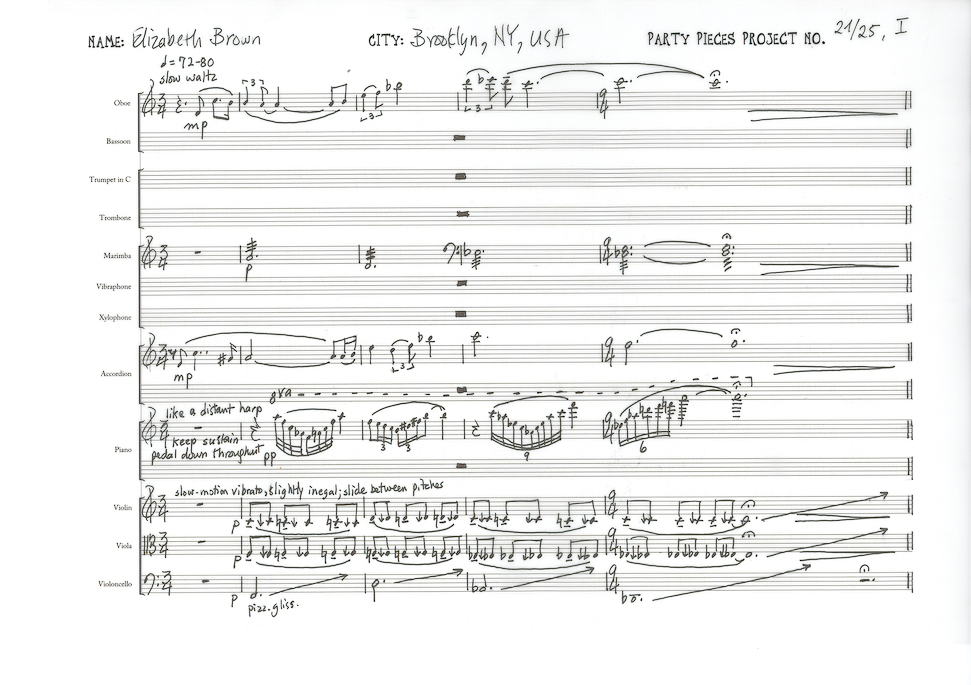 NAME: Elizabeth Brown CITY: Brooklyn, NY, USA PARTY PIECES PROJECT NO. 21/25, I
♩ = 72-80
slow waltz
Oboe
3
3
3
mp
Bassoon
Trumpet in C
Trombone
Marimba
p
Vibraphone
Xylophone
Accordion
mp
3
8va
like a distant harp
keep sustain
pedal down throughout pp
Piano
3 3 9 6
slow-motion vibrato; slightly inegal; slide between pitches
Violin
p
Viola
p
Violoncello
p
pizz. gliss.